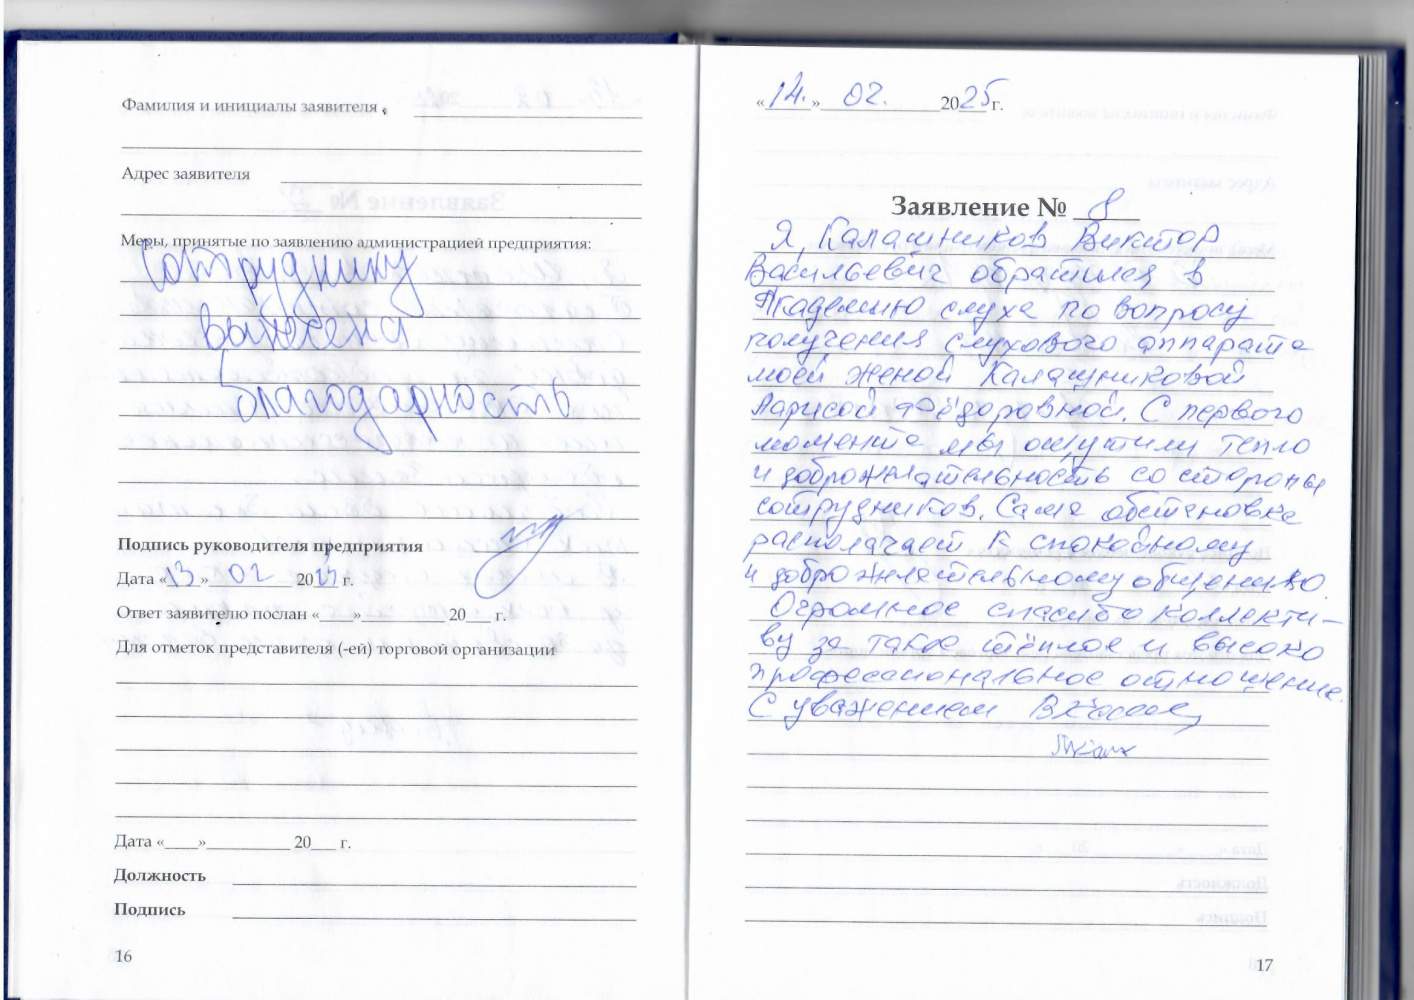 Фамилия и инициалы заявителя
Адрес заявителя
Меры, принятые по заявлению администрацией предприятия:
Сотруднику
вынесена
благодарность
Подпись руководителя предприятия
Дата «13» 02 20 г.
Ответ заявителю послан «___» ________ 20___ г.
Для отметок представителя (-ей) торговой организации
Дата «____»__________ 20___ г.
Должность
Подпись
16
«14.» 02. 2025 г.
Заявление № 8
Я, Калашников Виктор
Васильевич обратился в
Академию слуха по вопросу
получения слухового аппарата
моей женой Калашниковой
Ларисой Фёдоровной. С первого
момента мы ощутили тепло
и доброжелательность со стороны
сотрудников. Сама обстановка
располагает к спокойному
и доброжелательному общению.
Огромное спасибо коллекти-
ву за такое тёплое и высоко
профессиональное отношение.
С уважением
17